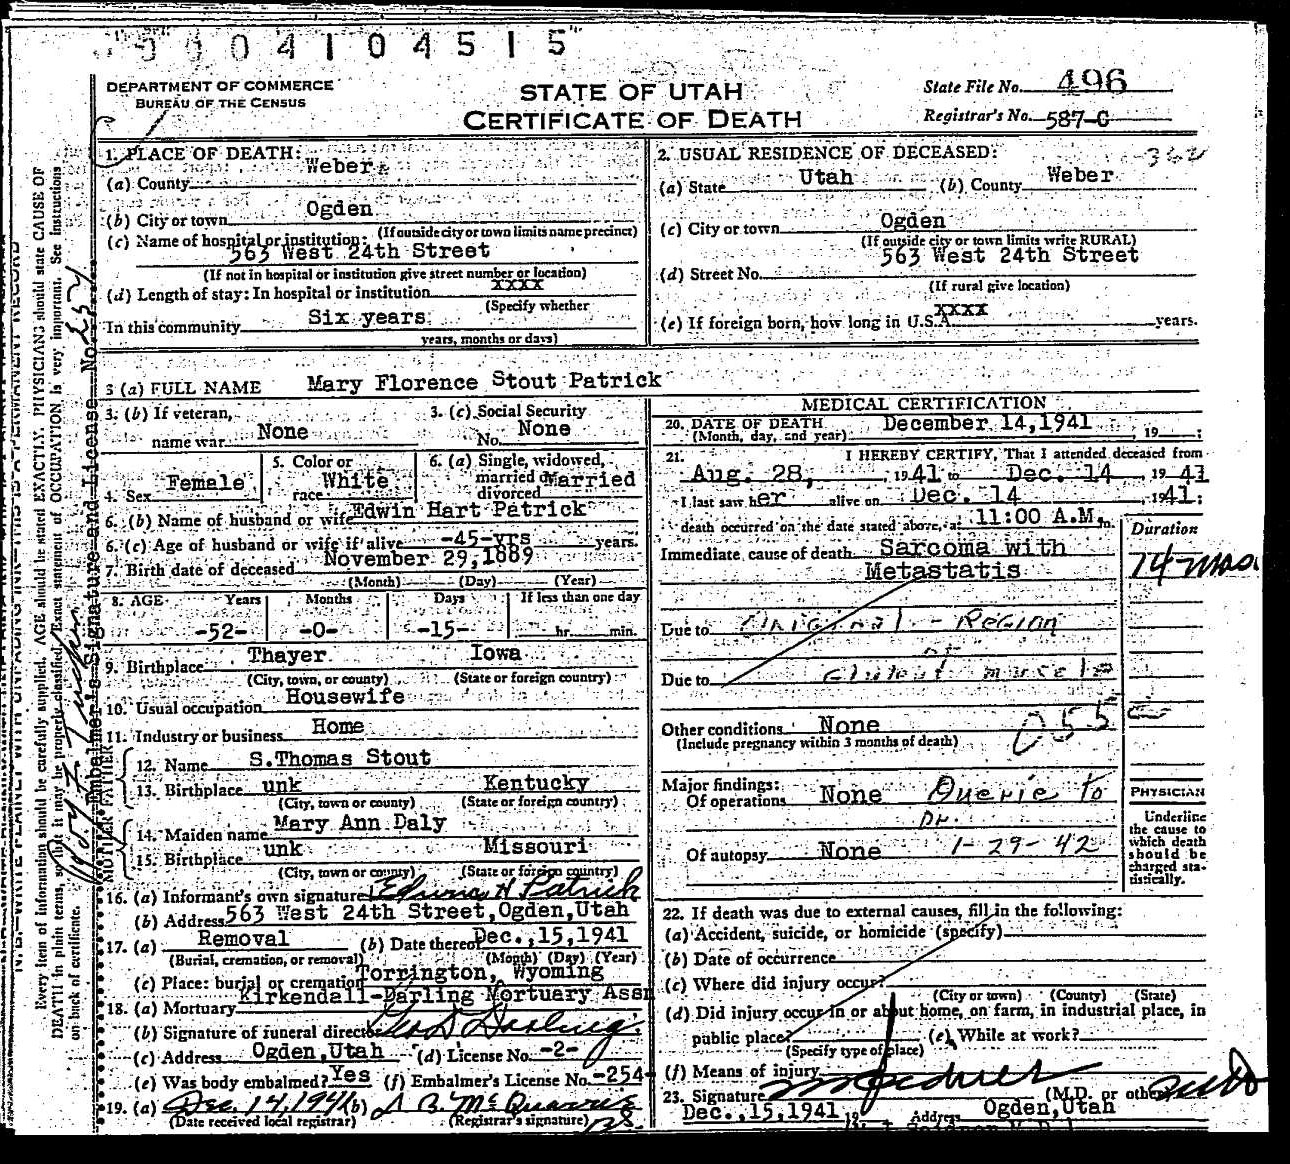 0004104515
DEPARTMENT OF COMMERCE
BUREAU OF THE CENSUS
STATE OF UTAH
CERTIFICATE OF DEATH
State File No. 496
Registrar's No. 587-G
1. PLACE OF DEATH:
(a) County Weber
(b) City or town Ogden
(If outside city or town limits name precinct)
(c) Name of hospital or institution:
563 West 24th Street
(If not in hospital or institution give street number or location)
(d) Length of stay: In hospital or institution xxxx
(Specify whether
In this community Six years
years, months or days)
2. USUAL RESIDENCE OF DECEASED:
(a) State Utah (b) County Weber
(c) City or town Ogden
(If outside city or town limits write RURAL)
(d) Street No. 563 West 24th Street
(If rural give location)
(e) If foreign born, how long in U.S.A. xxxx years.
3 (a) FULL NAME Mary Florence Stout Patrick
3. (b) If veteran, name war None
3. (c) Social Security No. None
4. Sex Female
5. Color or race White
6. (a) Single, widowed, married or divorced Married
6. (b) Name of husband or wife Edwin Hart Patrick
6. (c) Age of husband or wife if alive -45-yrs years.
7. Birth date of deceased November 29,1889
(Month) (Day) (Year)
8. AGE Years Months Days If less than one day
-52- -0- -15- hr. min.
9. Birthplace Thayer Iowa
(City, town, or county) (State or foreign country)
10. Usual occupation Housewife
11. Industry or business Home
FATHER
12. Name S.Thomas Stout
13. Birthplace unk Kentucky
(City, town or county) (State or foreign country)
MOTHER
14. Maiden name Mary Ann Daly
15. Birthplace unk Missouri
(City, town or county) (State or foreign country)
16. (a) Informant's own signature Edwin H Patrick
(b) Address 563 West 24th Street,Ogden,Utah
17. (a) Removal (b) Date thereof Dec.,15,1941
(Burial, cremation, or removal) (Month) (Day) (Year)
(c) Place: burial or cremation Torrington, Wyoming
18. (a) Mortuary Kirkendall-Darling Mortuary Assn
(b) Signature of funeral director Geo D Darling.
(c) Address Ogden,Utah (d) License No. -2-
(e) Was body embalmed? Yes (f) Embalmer's License No. -254-
19. (a) Dec. 14,1941 (b) D B. McQuarrie
(Date received local registrar) (Registrar's signature)
MEDICAL CERTIFICATION
20. DATE OF DEATH December 14,1941, 19
(Month, day, and year)
21. I HEREBY CERTIFY, That I attended deceased from
Aug. 28, 1941 to Dec. 14 1941
I last saw her alive on Dec. 14 1941:
death occurred on the date stated above, at 11:00 A.M. m.
Duration
Immediate cause of death Sarcoma with 14 mos.
Metastatis
Due to Original - Region
of
Due to Gluteal muscle
Other conditions None 055
(Include pregnancy within 3 months of death)
Major findings:
Of operations None Querie to
Dr.
Of autopsy None 1-29-42
PHYSICIAN
Underline
the cause to
which death
should be
charged sta-
tistically.
22. If death was due to external causes, fill in the following:
(a) Accident, suicide, or homicide (specify)
(b) Date of occurrence
(c) Where did injury occur?
(City or town) (County) (State)
(d) Did injury occur in or about home, on farm, in industrial place, in
public place? (e) While at work?
(Specify type of place)
(f) Means of injury
23. Signature (M.D. or other)
Dec.,15,1941 19 Address Ogden,Utah
Every item of information should be carefully supplied. AGE should be stated EXACTLY. PHYSICIANS should state CAUSE OF
DEATH in plain terms, so that it may be properly classified. Exact statement of OCCUPATION is very important. See Instructions
on back of certificate.
Embalmer's Signature and License No. 254